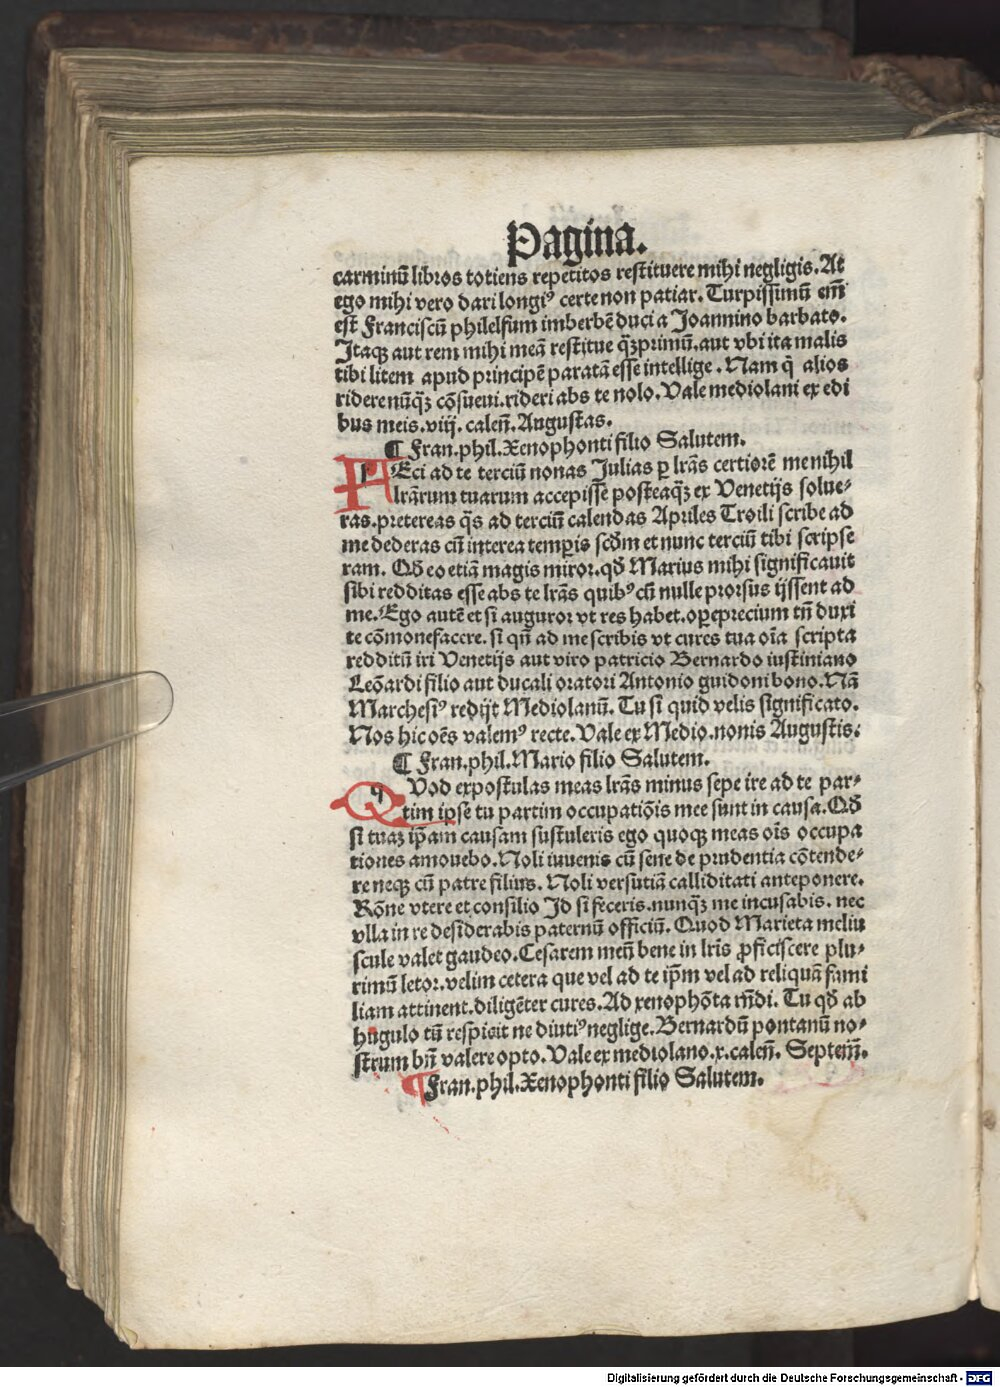 Pagina.
carminū libros totiens repetitos restituere mihi negligis. At
ego mihi vero dari longiꝰ certe non patiar. Turpissimū em̄
est Franciscū philelfum imberbē duci a Joannino barbato.
Itaqꝫ aut rem mihi meā restitue q̄ꝫprimū. aut vbi ita malis
tibi litem apud principē paratā esse intellige. Nam q̄ alios
ridere nūq̄ꝫ cōsueui. rideri abs te nolo. Vale mediolani ex edi
bus meis. viij. caleñ. Augustas.
¶ Fran. phil. Xenophonti filio Salutem.
FEci ad te terciū nonas Julias ꝑ lr̄as certiorē me nihil
lr̄arum tuarum accepisse posteaq̄ꝫ ex Venetijs solue⸗
ras. pretereas q̄s ad terciū calendas Apriles Troili scribe ad
me dederas cū interea temꝑis scd̄m et nunc terciū tibi scripse
ram. Qd̄ eo etiā magis miror. qd̄ Marius mihi significauit
sibi redditas esse abs te lr̄as quibꝰ cū nulle prorsus ijssent ad
me. Ego autē et si auguror vt res habet. oꝑeprecium tn̄ duxi
te cōmonefacere. si qn̄ ad me scribis vt cures tua oīa scripta
redditū iri Venetijs aut viro patricio Bernardo iustiniano
Leōardi filio aut ducali oratori Antonio guidoni bono. Nā
Marchesiꝰ redijt Mediolanū. Tu si quid velis significato.
Nos hic oēs valemꝰ recte. Vale ex Medio. nonis Augustis.
¶ Fran. phil. Mario filio Salutem.
QVod expostulas meas lr̄as minus sepe ire ad te par⸗
tim ipse tu partim occupatiōis mee sunt in causa. Qd̄
si tuaꝫ ip̄am causam sustuleris ego quoqꝫ meas oīs occupa
tiones amouebo. Noli iuuenis cū sene de prudentia cōtende⸗
re neqꝫ cū patre filius. Noli versutiā calliditati anteponere.
Rōne vtere et consilio Id si feceris. nunq̄ꝫ me incusabis. nec
vlla in re desiderabis paternū officiū. Quod Marieta meliu
scule valet gaudeo. Cesarem meū bene in lr̄is ꝓficiscere plu⸗
rimū letor. velim cetera que vel ad te ip̄m vel ad reliquā fami
liam attinent. diligēter cures. Ad xenophōta m̄di. Tu qd̄ ab
hugulo tū respicit ne diutiꝰ neglige. Bernardū pontanū no⸗
strum bn̄ valere opto. Vale ex mediolano. x. caleñ. Septem̄.
¶ Fran. phil. Xenophonti filio Salutem.
Digitalisierung gefördert durch die Deutsche Forschungsgemeinschaft - DFG